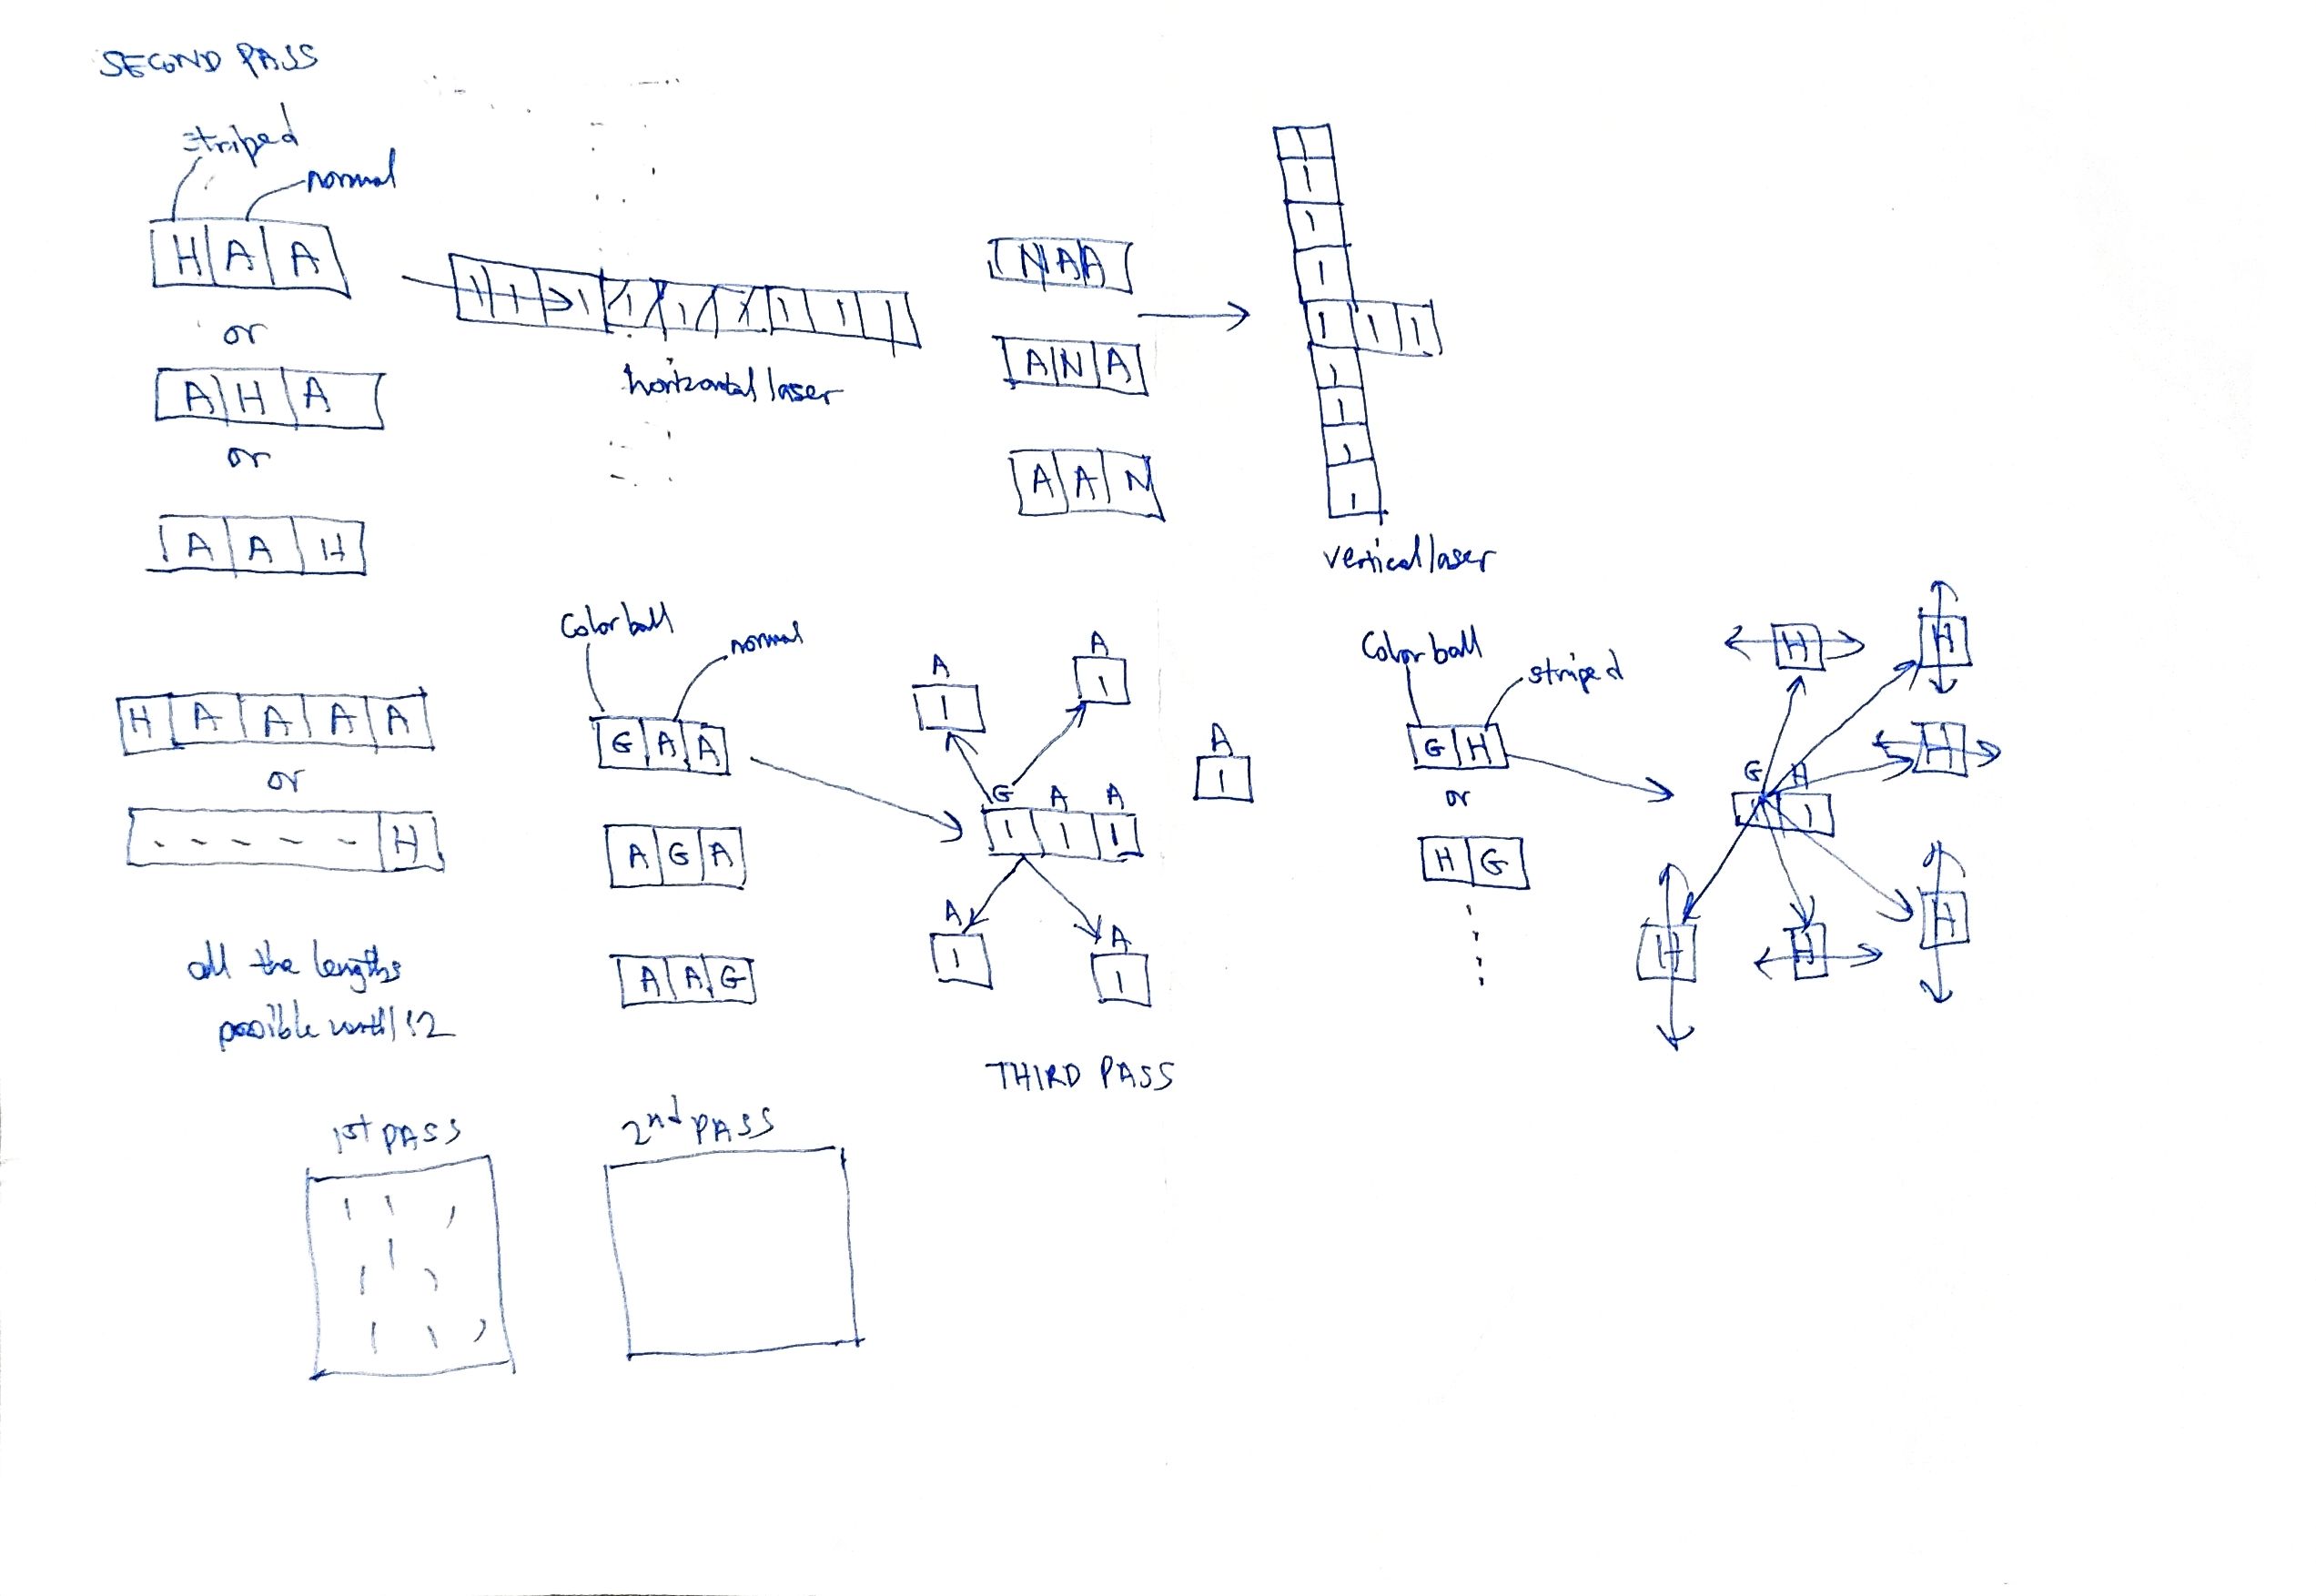 SECOND PASS
striped
normal
H A A
or
A H A
or
A A H
1 1 1 1 1 1 1 1 1
horizontal laser
N A A
A N A
A A N
1
1
1
1
1 1 1
1
1
1
1
vertical laser
H A A A A
or
- - - - - H
all the lengths
possible until 12
Color ball
normal
G A A
A G A
A A G
A
1
A
1
G A A
1 1 1
A
1
A
1
A
1
THIRD PASS
Color ball
striped
G H
or
H G
H
H
H
G H
1 1
H
H
H
1st PASS
1 1 1
1
1 1
1 1 1
2nd PASS